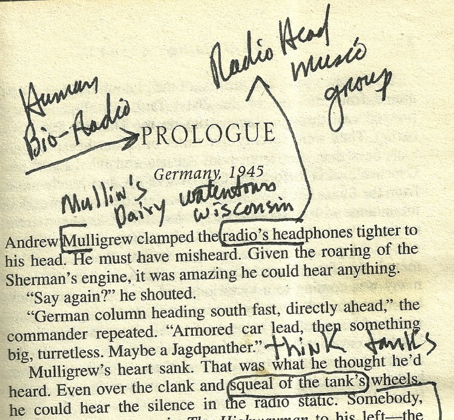 Radio Head
music
group
Human
Bio-Radio
PROLOGUE
Germany, 1945
Mullin's
Dairy watertown
wisconsin
Andrew Mulligrew clamped the radio's headphones tighter to
his head. He must have misheard. Given the roaring of the
Sherman's engine, it was amazing he could hear anything.
"Say again?" he shouted.
"German column heading south fast, directly ahead," the
commander repeated. "Armored car lead, then something
big, turretless. Maybe a Jagdpanther."
think tanks
Mulligrew's heart sank. That was what he thought he'd
heard. Even over the clank and squeal of the tank's wheels,
he could hear the silence in the radio static. Somebody,
The Highwayman to his left—the